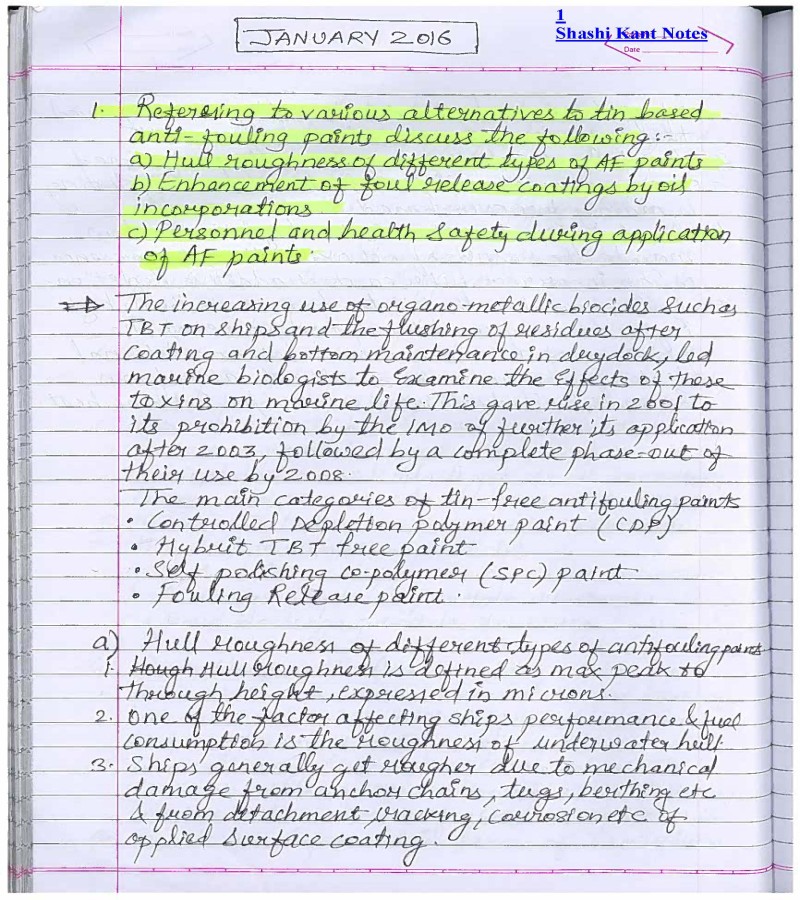 1
Shashi Kant Notes
Date
JANUARY 2016
1. Refering to various alternatives to tin based
anti-fouling paints discuss the following:-
a) Hull roughness of different types of AF paints
b) Enhancement of foul release coatings by oil
incorporations
c) Personnel and health safety during application
of AF paints.
⇒ The increasing use of organo-metallic biocides such as
TBT on ships and the flushing of residues after
coating and bottom maintenance in drydock, led
marine biologists to examine the effects of these
toxins on marine life. This gave rise in 2001 to
its prohibition by the IMO of further its application
after 2003, followed by a complete phase-out of
their use by 2008.
The main categories of tin-free antifouling paints
• Controlled Depletion polymer paint (CDP)
• Hybrit TBT free paint
• Self polishing co-polymer (SPC) paint
• Fouling Release paint.
a) Hull roughness of different types of antifouling paints
1. Hough Hull roughness is defined as max peak to
through height, expressed in microns.
2. One of the factor affecting ships performance & fuel
consumption is the roughness of underwater hull.
3. Ships generally get rougher due to mechanical
damage from anchor chains, tugs, berthing etc
& from detachment, cracking, corrosion etc of
applied surface coating.